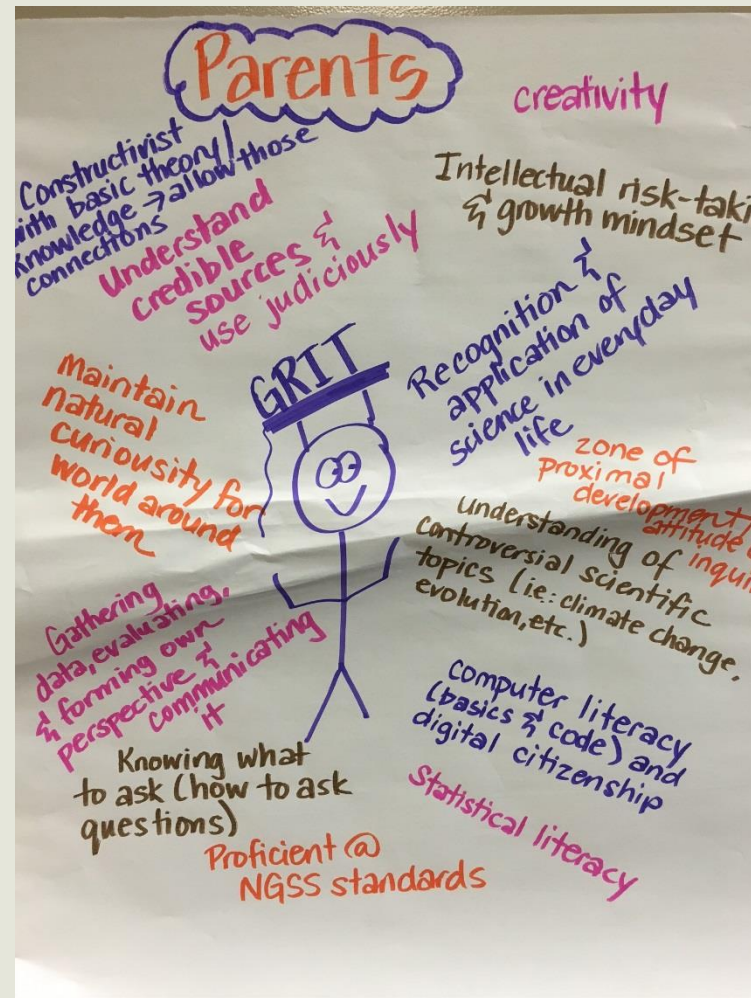 Parents
creativity
Constructivist
with basic theory/
knowledge → allow those
connections
Understand
credible
sources &
use judiciously
Intellectual risk-taki
& growth mindset
GRIT
Recognition &
application of
science in everyday
life
Maintain
natural
curiousity for
world around
them
zone of
proximal
development,
attitude
inqui
understanding of
controversial scientific
topics (ie: climate change,
evolution, etc.)
Gathering
data, evaluating,
& forming own
perspective &
communicating
it
computer literacy
(basics & code) and
digital citizenship
Knowing what
to ask (how to ask
questions)
Statistical literacy
Proficient @
NGSS standards